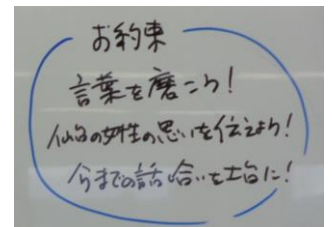 お約束
言葉を磨こう!
仙台の女性の思いを伝えよう!
今までの話し合いを土台に!